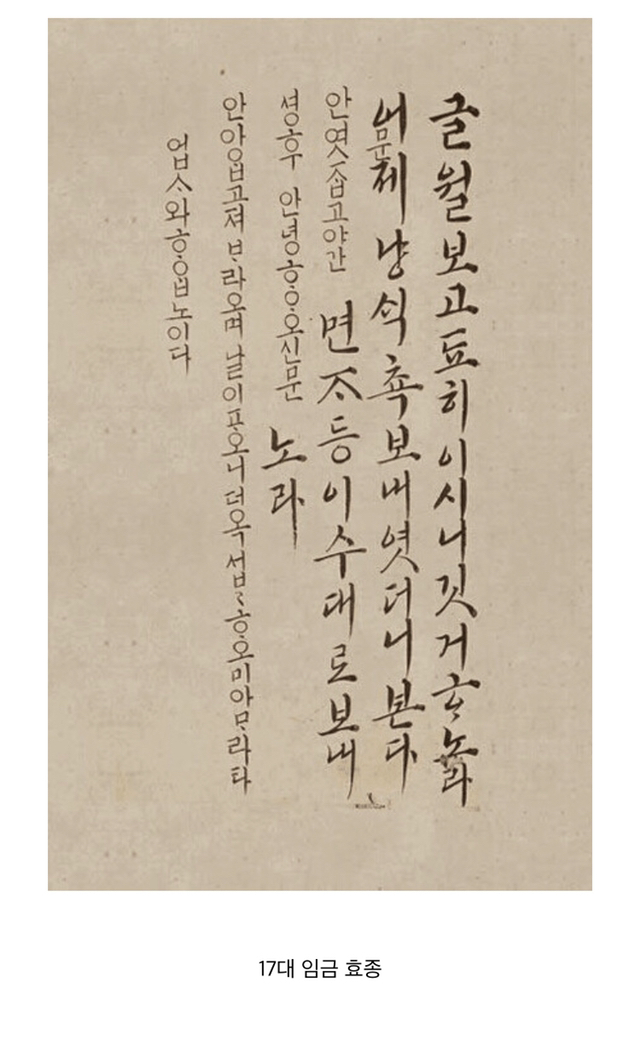 글월보고됴히이시니깃거ᄒᆞ노라
어문제냥ᄉᆡᆨ쵹보내엿더니본다
안엿ᄌᆞᆸ고야간 면ᄌᆞ등이수대로보내
셩후 안녕ᄒᆞᄋᆞ오신문 노라
안아ᄋᆞᆸ고져ᄇᆞ라오며 날이ᄑᆞ오니더옥섭섭ᄒᆞ오미아ᄆᆞ라타
업ᄉᆞ와ᄒᆞᄋᆞᆸ노이다
17대 임금 효종